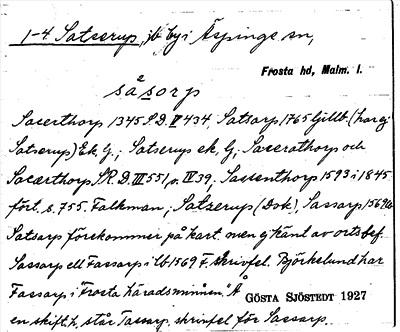 1-4 Satserup, jb. by i Äspinge sn,
Frosta hd, Malm. l.
såsorp
Sacerthorp 1345 S.D. V 434, Satsarp 1765 Gillb. (har ej
Satserup) Ek. G.; Satserup ek. G; Sacerathorp och
Socærthorp, SR.D. III 551, o. IV 39, Sassenthorp 1593 i 1845
fört. s. 755. Falkman; Satzerup (Dok), Sassarp 1569
Satsarp förekommer på kart. men ej känt av ortsbef.
Sassarp ell Fassarp i lb 1569 F. skrivfel. Björkelund har
Fassarp i "Frosta häradsminnen". Å
GÖSTA SJÖSTEDT 1927
en skifth. står Tassarp, skrivfel för Sassarp.